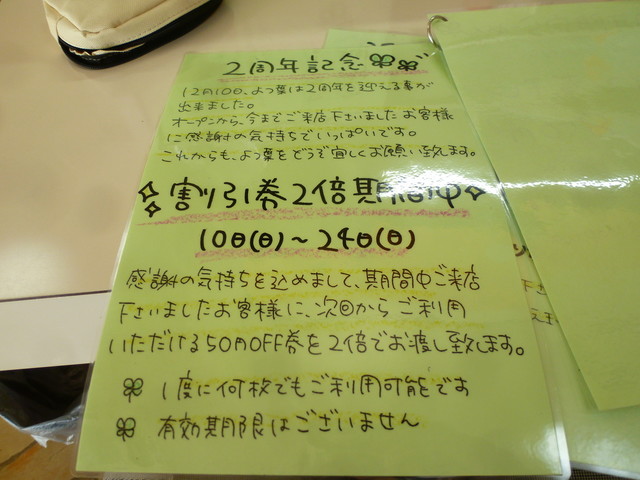 2周年記念
12月10日、よつ葉は2周年を迎える事が
出来ました。
オープンから、今までご来店下さいましたお客様
に感謝の気持ちでいっぱいです。
これからも、よつ葉をどうぞ宜しくお願い致します。
割り引券2倍期間中
10日(日)～24日(日)
感謝の気持ちを込めまして、期間中ご来店
下さいましたお客様に、次回からご利用
いただける50円OFF券を2倍でお渡し致します。
1度に何枚でもご利用可能です
有効期限はございません